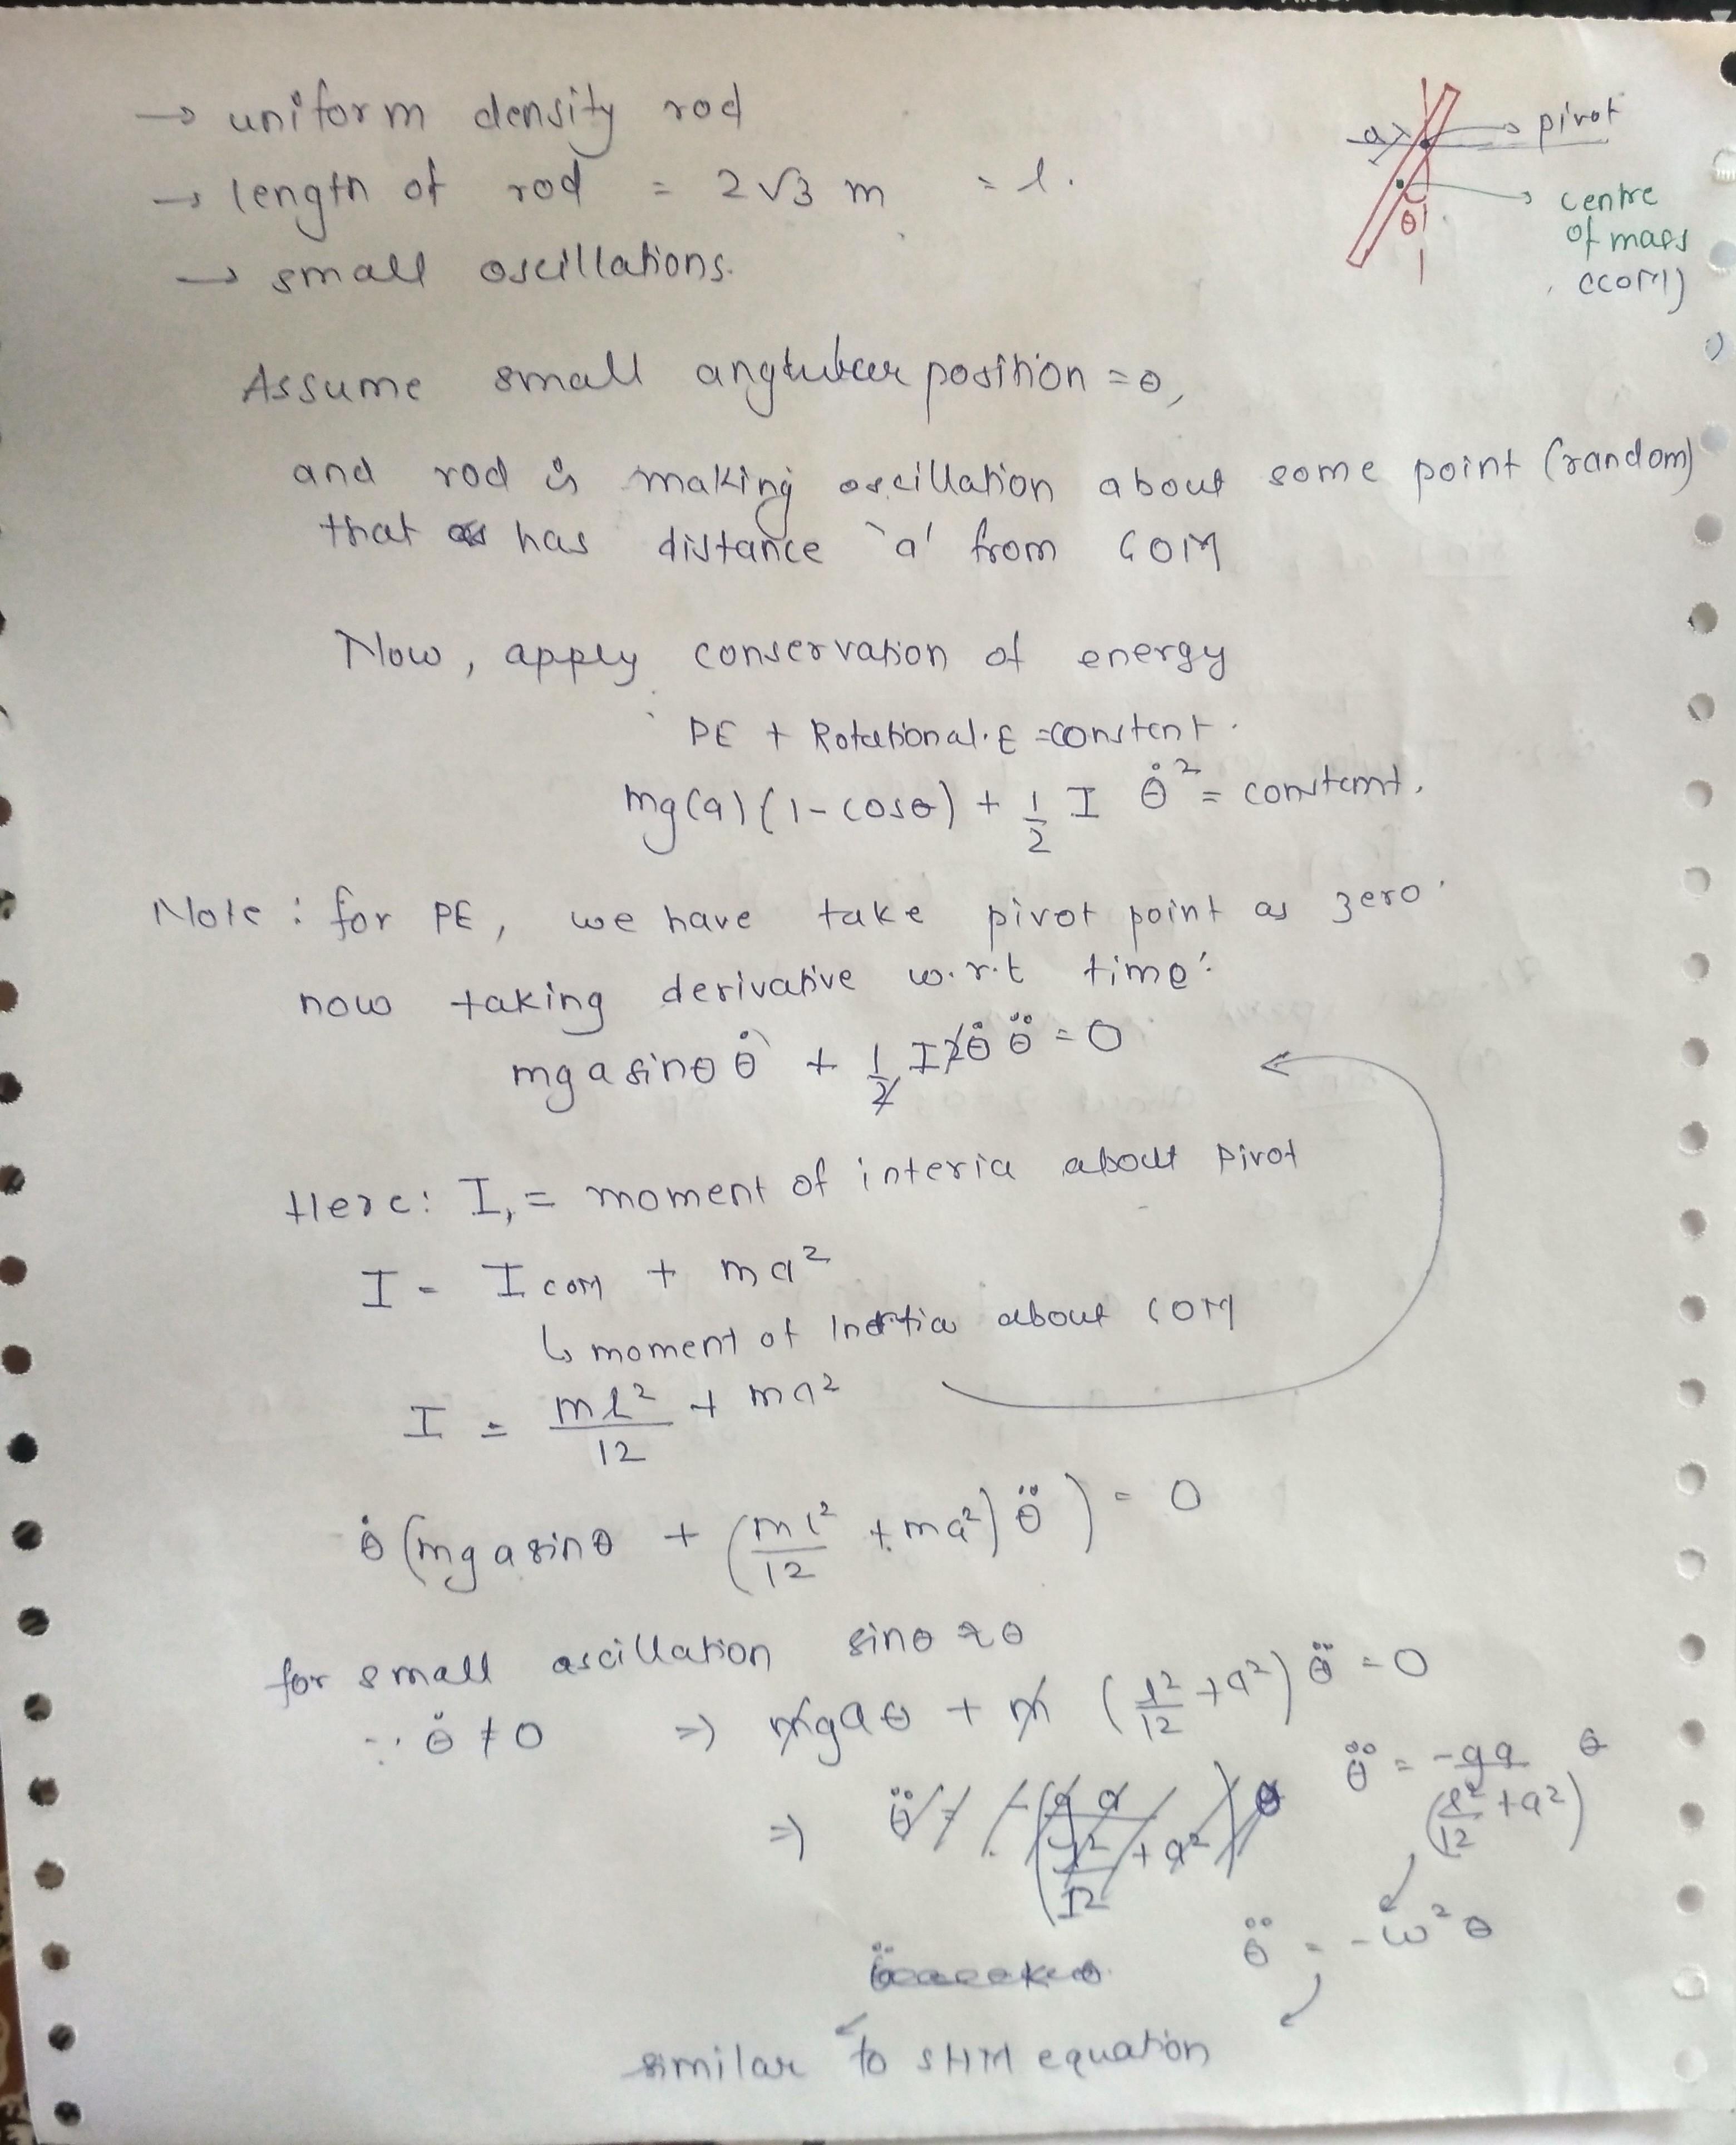 → uniform density rod
→ length of rod = 2√3 m = l.
→ small oscillations.
a
pivot
centre
of mass
(COM)
θ
Assume small angtular position = θ,
and rod is making oscillation about some point (random)
that has distance 'a' from COM
Now, apply conservation of energy
PE + Rotational.E = constant.
mg(a)(1-cosθ) + 1/2 I θ̇² = constant.
Note: for PE, we have take pivot point as zero.
now taking derivative w.r.t time:
mg a sinθ θ̇ + 1/2 I 2θ̇ θ̈ = 0
Here: I, = moment of interia about pivot
I = I com + ma²
↳ moment of Inertia about COM
I = ml²/12 + ma²
θ̇ (mg a sinθ + (ml²/12 + ma²) θ̈) = 0
for small ascillation sinθ ≈ θ
∵ θ̇ ≠ 0 ⇒ mgaθ + m (l²/12 + a²) θ̈ = 0
⇒ θ̈ = -(g a / (l²/12 + a²)) θ
θ̈ = -ga/(l²/12 + a²) θ
θ̈ = -ω² θ
similar to SHM equation